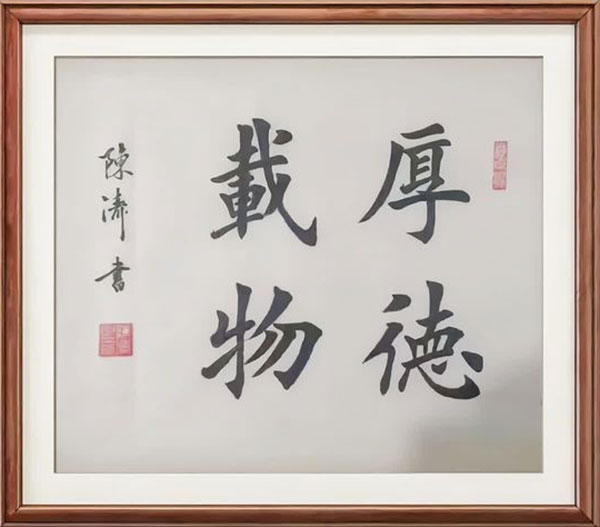 厚德
載物
陳涛書